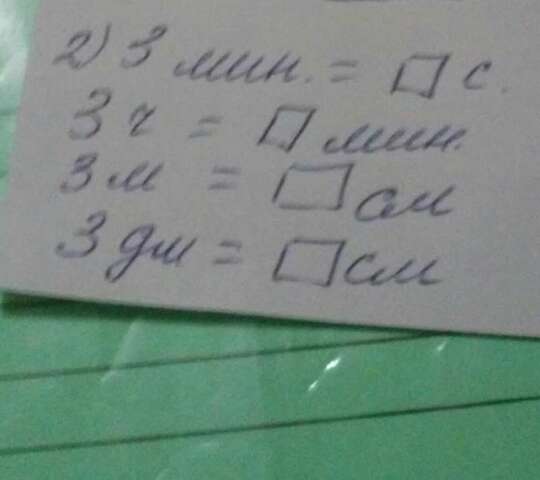 2) 3 мин. = □ с.
3 ч = □ мин.
3 м = □ см
3 дм = □ см